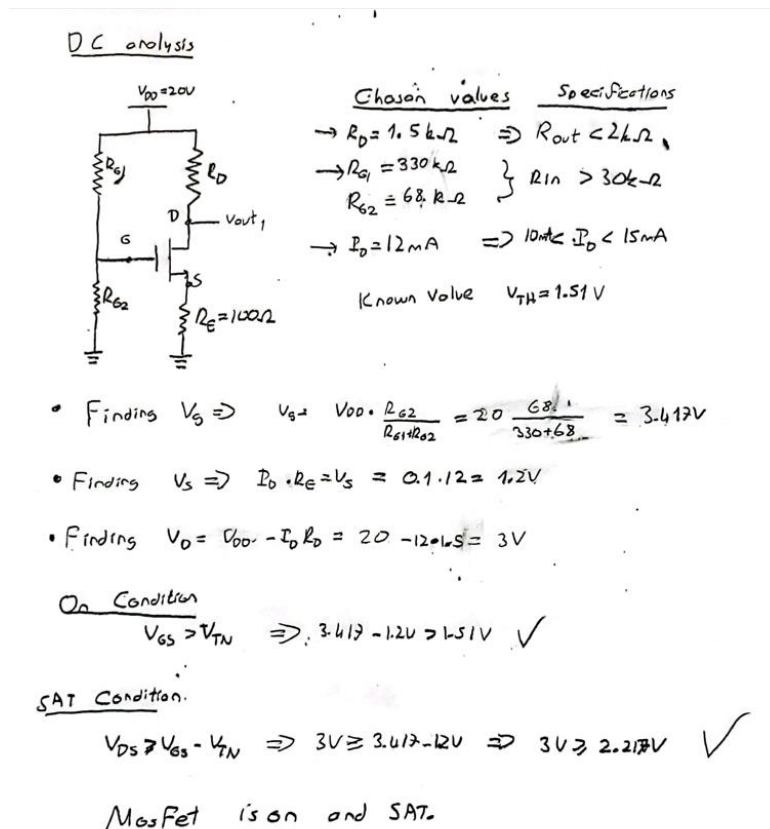 DC analysis
V_DD=20V
R_G1
R_D
D
Vout_1
G
S
R_G2
R_E=100Ω
Chosen values Specifications
→ R_D=1.5kΩ ⇒ Rout<2kΩ
→ R_G1=330kΩ
R_G2=68kΩ } Rin > 30kΩ
→ I_D=12mA ⇒ 10mA< I_D < 15mA
Known Value V_TH=1.51V
• Finding V_G ⇒ V_G= V_DD . R_G2/(R_G1+R_G2) = 20 68/(330+68) = 3.417V
• Finding V_S ⇒ I_D . R_E = V_S = 0.1.12 = 1.2V
• Finding V_D = V_DD - I_D R_D = 20 -12•1.5 = 3V
On Condition
V_GS > V_TN ⇒ 3.417 - 1.2V > 1.51V ✓
SAT Condition.
V_DS ≥ V_GS - V_TN ⇒ 3V ≥ 3.417-12V ⇒ 3V ≥ 2.217V ✓
MosFet is on and SAT.